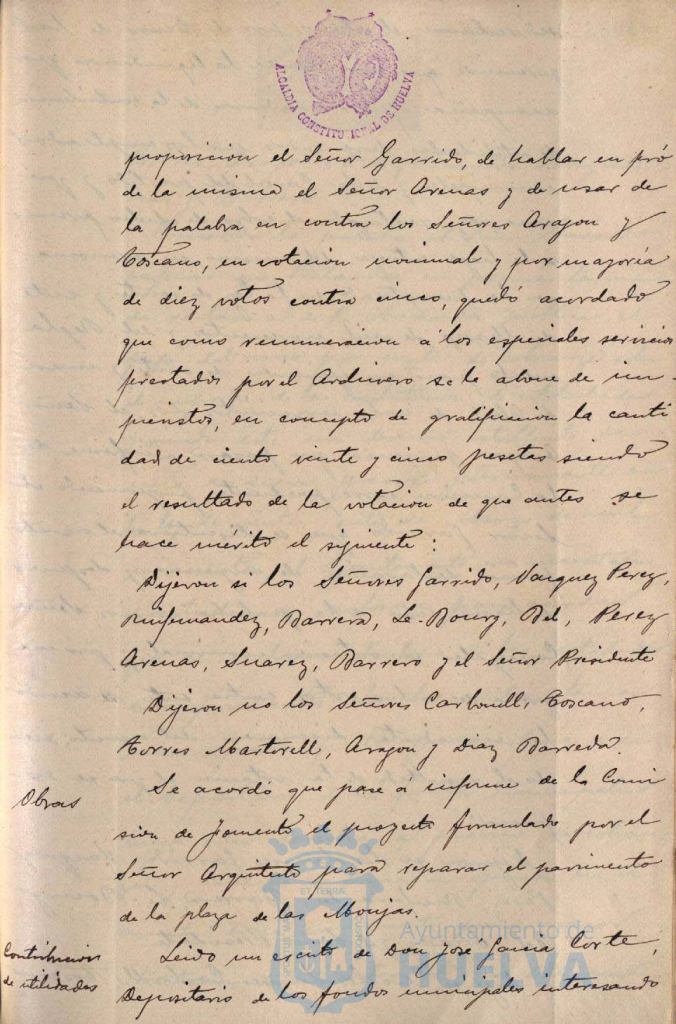 ALCALDIA CONSTITUCIONAL DE HUELVA
proposicion el Señor Garrido, de hablar en pró
de la misma el Señor Arenas y de usar de
la palabra en contra los Señores Aragon y
Toscano, en votacion nominal y por mayoria
de diez votos contra cinco, quedó acordado
que como remuneracion á los especiales servicios
prestados por el Archivero se le abone de im-
previstos, en concepto de gratificacion la canti
dad de ciento veinte y cinco pesetas siendo
el resultado de la votacion de que antes se
hace mérito el siguiente:
Dijeron si los Señores Garrido, Vazquez Perez,
Ruifernandez, Barrera, Le-Bourg, Bel, Perez
Arenas, Suarez, Barrero y el Señor Presidente
Dijeron no los Señores Carbonell, Toscano,
Torres Martorell, Aragon y Diaz Barreda.
Obras
Se acordó que pase á informe de la Comi
sion de Fomento el proyecto formulado por el
Señor Arquitecto para reparar el pavimento
de la plaza de las Monjas.
Contribucion
de utilidades
Leido un escrito de Don José Garcia Corte,
Depositario de los fondos municipales interesando
Ayuntamiento de
HUELVA